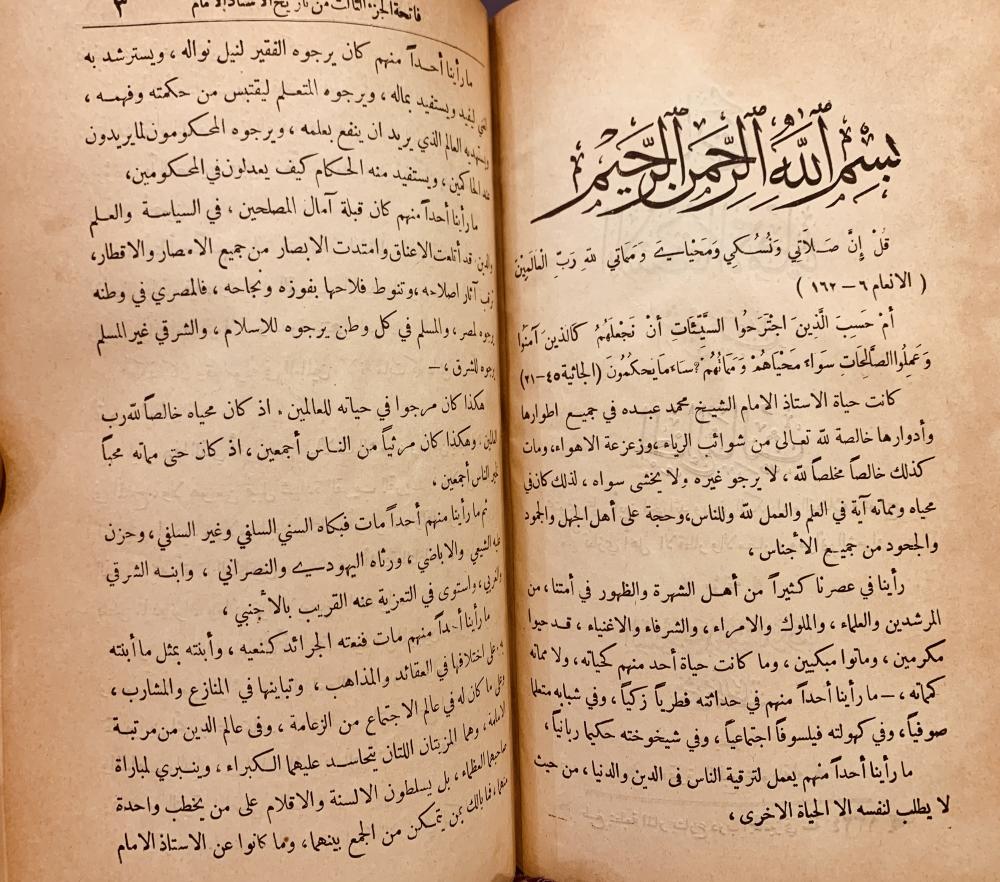 بسم الله الرحمن الرحيم
قُلْ إِنَّ صَلَاتِي وَنُسُكِي وَمَحْيَايَ وَمَمَاتِي لله رَبِّ الْعَالَمِيْنَ
( الانعام ٦ – ١٦٢ )
أمْ حَسِبَ الَّذِينَ اجْتَرَحُوا السَّيِّئَاتِ أنْ نَجْعَلَهُمْ كَالذينَ آمَنُوا
وَعَمِلُوا الصَّالِحَاتِ سَوَاءً مَحْيَاهُمْ وَمَمَاتُهُمْ؟ سَاءَ مَا يَحكُمُونَ (الجاثية ٤٥–٢١)
كانت حياة الاستاذ الامام الشيخ محمد عبده في جميع اطوارها
وأدوارها خالصة لله تعالى من شوائب الرياء، وزعزعة الاهواء، ومات
كذلك خالصاً مخلصاً لله ، لا يرجو غيره ولا يخشى سواه ، لذلك كان في
محياه ومماته آية في العلم والعمل لله وللناس، وحجة على أهل الجهل والجمود
والجحود من جميع الأجناس ،
رأينا في عصرنا كثيراً من أهل الشهرة والظهور في أمتنا، من
المرشدين والعلماء ، والملوك والامراء ، والشرفاء والاغنياء ، قد حيوا
مكرمين ، وماتوا مبكيين ، وما كانت حياة أحد منهم كحياته، ولا مماته
كمماته ، — ما رأينا أحداً منهم في حداثته فطرياً زكياً، وفي شبابه متعلما
صوفياً، وفي كهولته فيلسوفاً اجتماعياً ، وفي شيخوخته حكيما ربانياً،
ما رأينا أحداً منهم يعمل لترقية الناس فى الدين والدنيا ، من حيث
لا يطلب لنفسه الا الحياة الاخرى ،
فاتحة الجزء الثالث من تاريخ الاستاذ الامام ٣
ما رأينا أحداً منهم كان يرجوه الفقير لنيل نواله ، ويسترشد به
الغني ليفيد ويستفيد بماله ، ويرجوه المتعلم ليقتبس من حكمته وفهمه ،
ويستهديه العالم الذي يريد ان ينفع بعلمه ، ويرجوه المحكومون لما يريدون
عند الحاكمين ، ويستفيد منه الحكام كيف يعدلون في المحكومين،
ما رأينا أحداً منهم كان قبلة آمال المصلحين ، في السياسة والعلم
والدين، قد أتلعت الاعناق وامتدت الابصار من جميع الامصار والاقطار،
ترقب آثار اصلاحه ، وتنوط فلاحها بفوزه ونجاحه ، فالمصري في وطنه
يرجوه لمصر ، والمسلم في كل وطن يرجوه للاسلام ، والشرقي غير المسلم
يرجوه للشرق ، —
هكذا كان مرجوا في حياته للعالمين ، اذ كان محياه خالصاً لله رب
العالمين، وهكذا كان مرثياً من الناس أجمعين ، اذ كان حتى مماته محباً
لخير الناس أجمعين ،
ثم ما رأينا منهم أحداً مات فبكاه السني السلفي وغير السلفي، وحزن
عليه الشيعي والاباضي ، ورثاه اليهودي والنصراني ، وابنه الشرقي
والغربي ، واستوى في التعزية عنه القريب بالاجنبي ،
ما رأينا أحداً منهم مات فنعته الجرائد كنعيه ، وأبنته بمثل ما أبنته
به ، على اختلافها في العقائد والمذاهب ، وتباينها في المنازع والمشارب ،
وعلى ما كان له في عالم الاجتماع من الزعامة ، وفى عالم الدين من مرتبة
الامامة، وهما المزيتان اللتان يتحاسد عليهما الكبراء ، وينبري لمباراة
صاحبهما العظماء ، بل يسلطون الالسنة والاقلام على من يخطب واحدة
منهما، فما بالك بمن يتمكن من الجمع بينهما، وما كانوا عن الاستاذ الامام